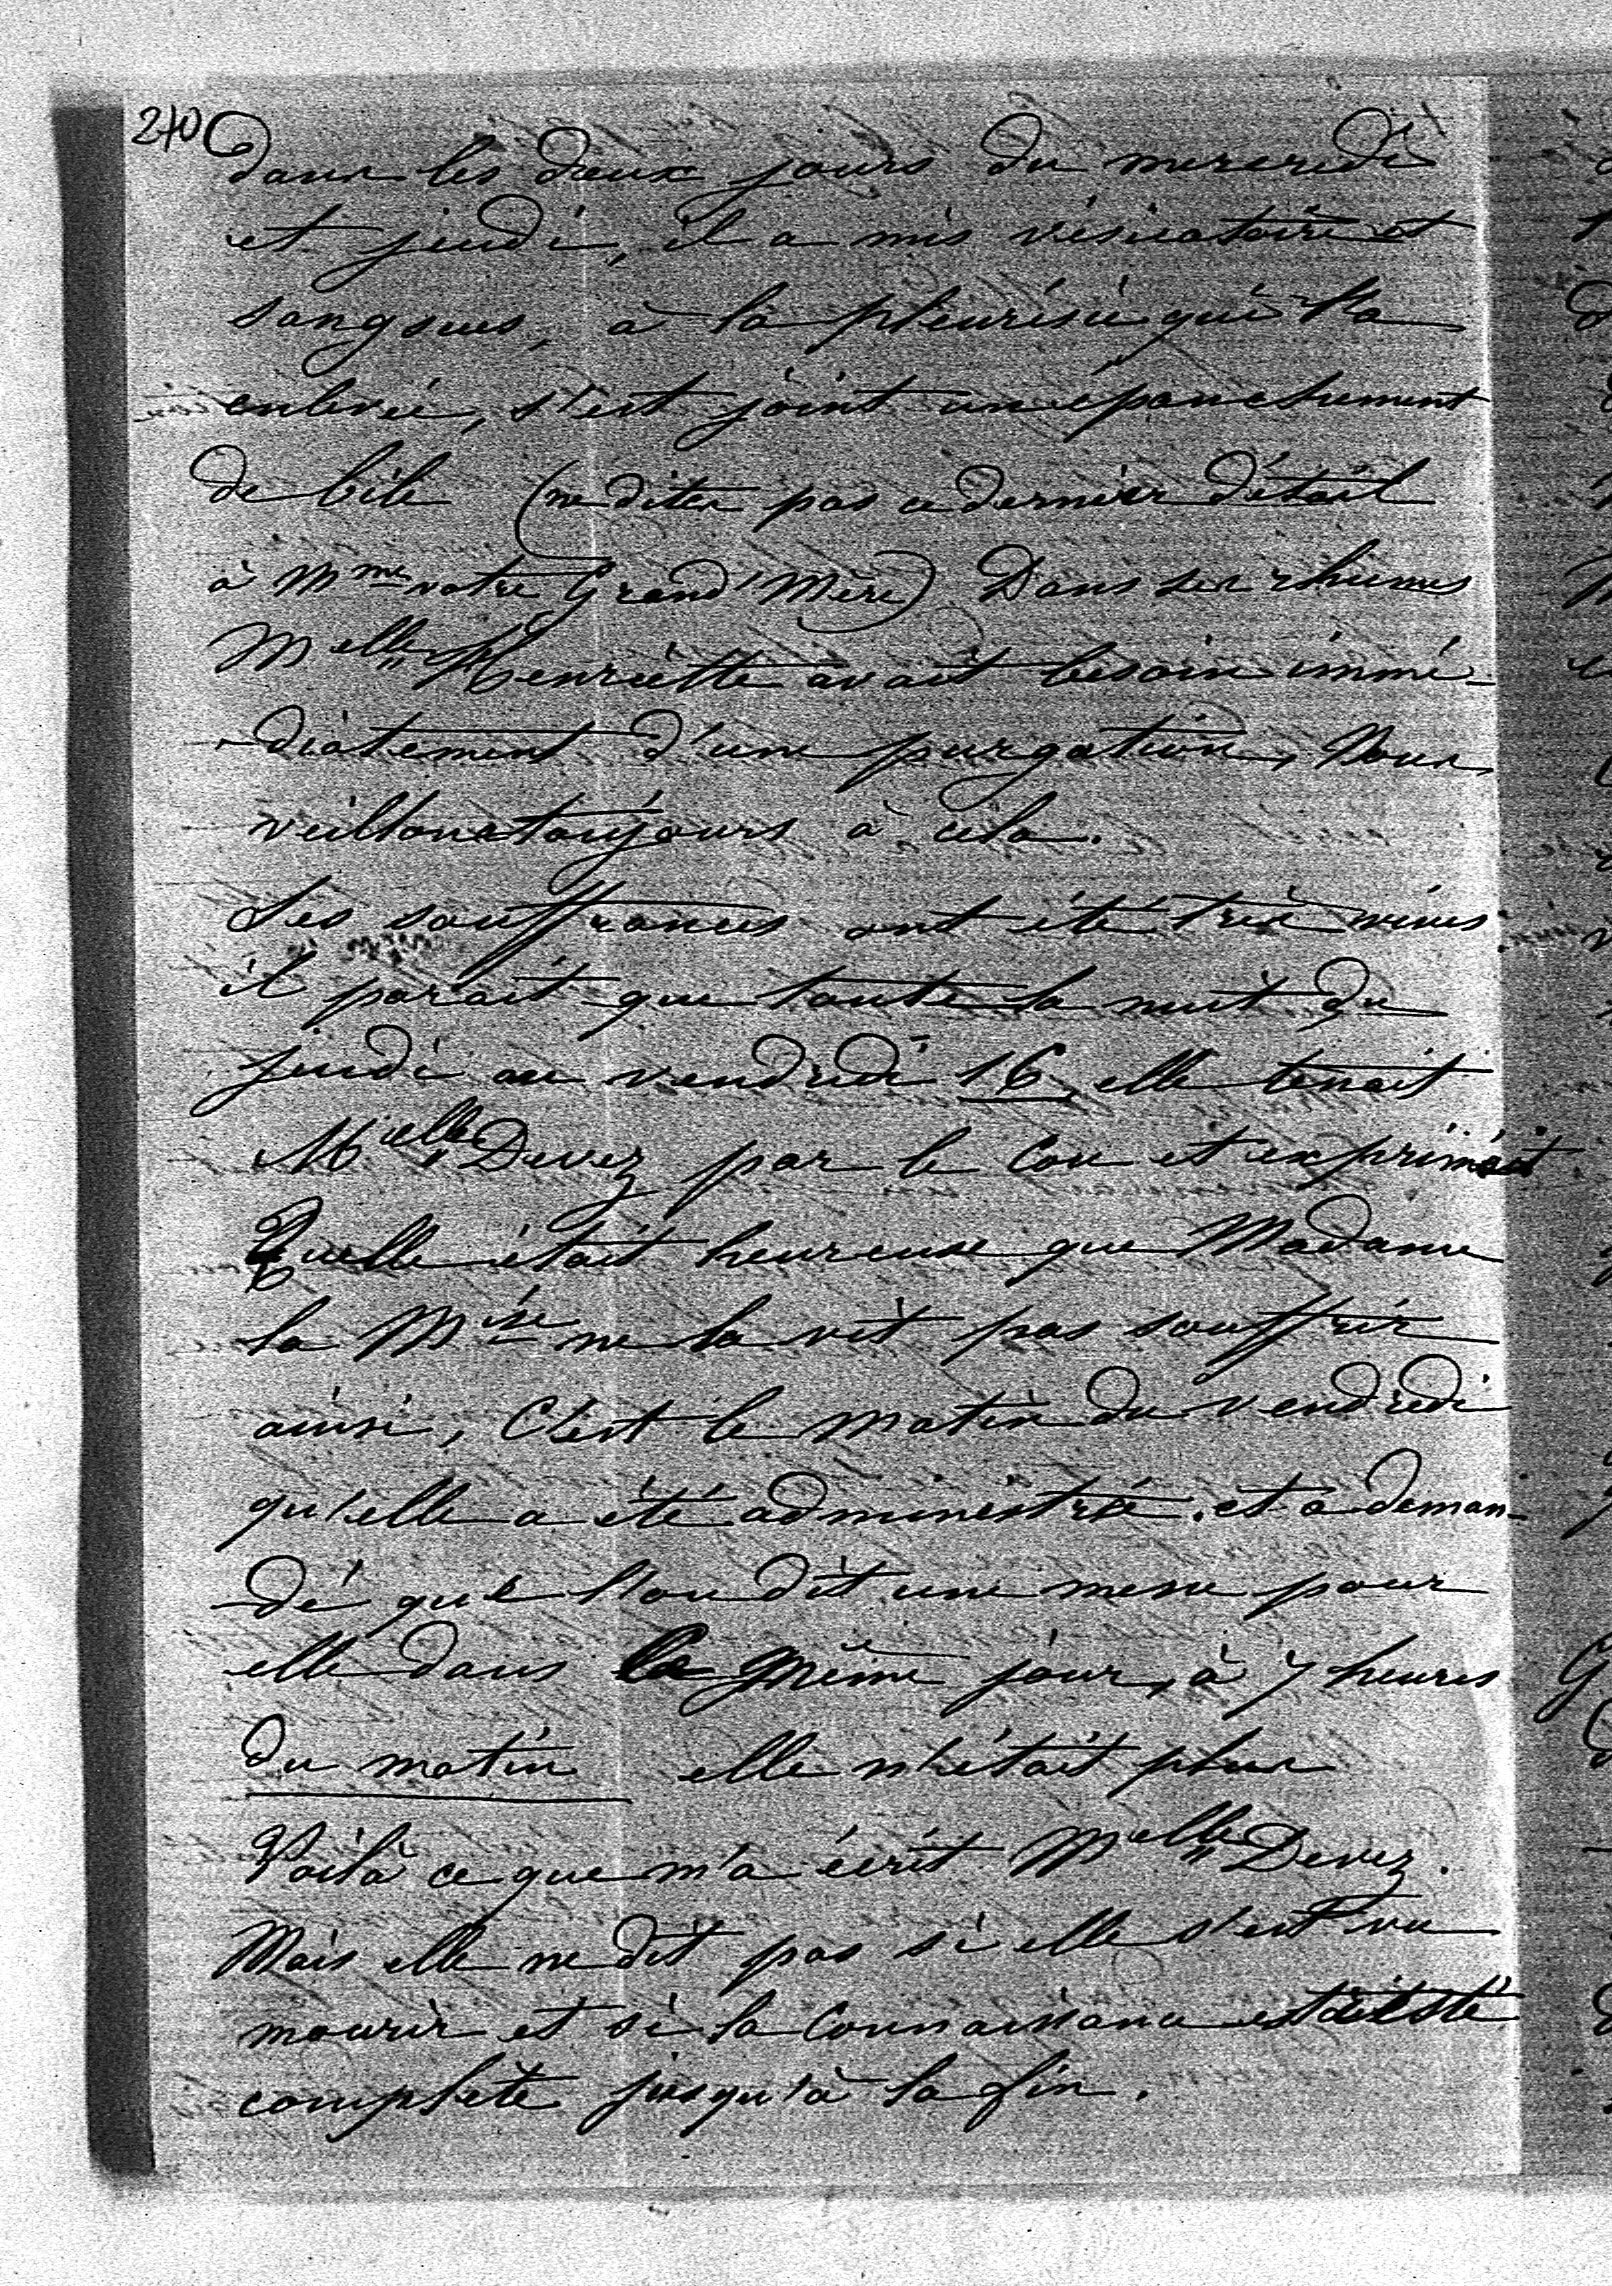 270
dans les deux jours du mercredi
et jeudi, il a mis vésicatoire et
sangsues, à la pleurésie qui l'a
enlevée, s'est joint un épanchement
de bile (ne dites pas ce dernier détail
à Mme votre Grand'Mère) Dans ses rhumes
Melle Henriette avait besoin immé-
-diatement d'une purgation, Nous
veillons toujours à cela.
Les souffrances ont été très vives
il parait que toute la nuit du
jeudi au vendredi 16, elle tenait
Melle Devez par le Cou et exprimait
Quelle était heureuse que Madame
la Mise ne la vit pas souffrir
ainsi, C'est le matin du vendredi
qu'elle a été administrée. et a deman-
-dé que l'on dit une messe pour
elle dans le même jour, à 7 heures
du matin elle n'était plus
Voilà ce que m'a écrit Melle Devez.
Mais elle ne dit pas si elle s'est vu
mourir et si la Connaissance est
complète jusqu'à la fin.